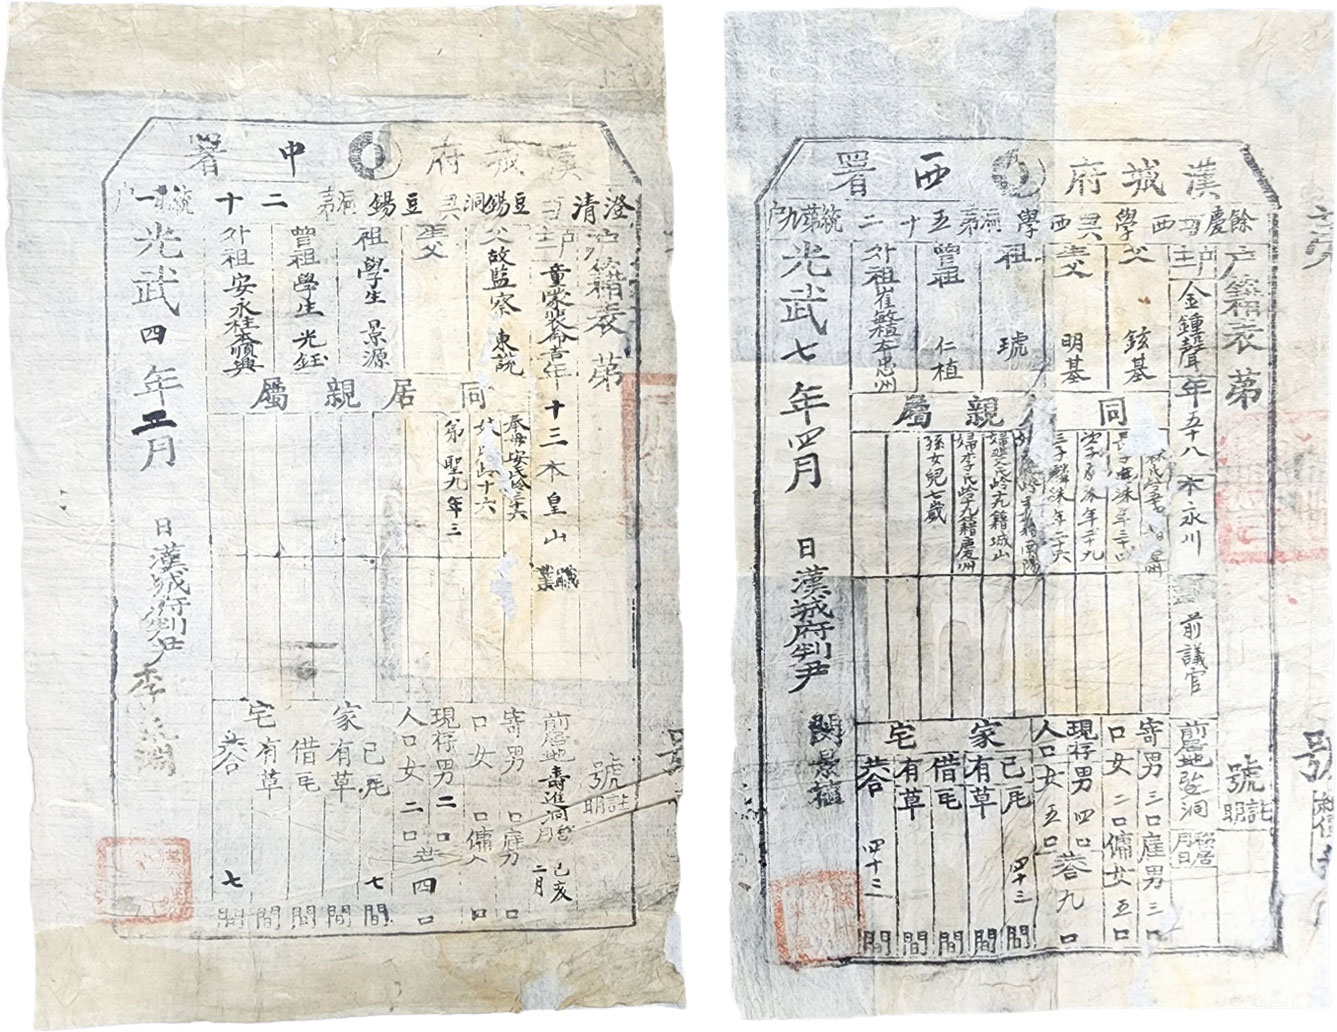 漢城府 中署
澄清坊豆錫洞契豆錫洞第二十統第一戶
戶籍表 第
號 証明
戶主 童蒙裴命吉 年 十三 本 皇山 職業
前居地 壽進洞 己亥 二月
父 故監察 東說
生父
祖 學生 景源
曾祖 學生 光鈺
外祖 安永柱 本順興
同居親屬
奉母安氏
弟 聖九 年三
寄 男 口 雇男 口
口 女 口 傭女 口
現存 男 二口
人口 女 二口 共四口
家宅
己 瓦 七 間
有 草 間
借 瓦 間
有 草 間
共合 七 間
光武 四年 二月 日 漢城府判尹 李
漢城府 西署
餘慶坊 西學契 西學洞第五十二統第九戶
戶籍表 第
號 証明
戶主 金鍾聲 年 五十八 本 永川 前議官
前居地 弘洞 移居月日
父 鉉基
生父 明基
祖 琥
曾祖 仁植
外祖 崔敏 本忠州
同 親屬
三子麟洙年二十六
婦李氏齡十九籍慶州
孫女兒七歲
寄 男 三口 雇男 三口
口 女 二口 傭女 五口
現存 男 四口
人口 女 五口 共九口
家宅
己 瓦 四十三 間
有 草 間
借 瓦 間
有 草 間
共合 四十三 間
光武 七年 四月 日 漢城府判尹 閔景植